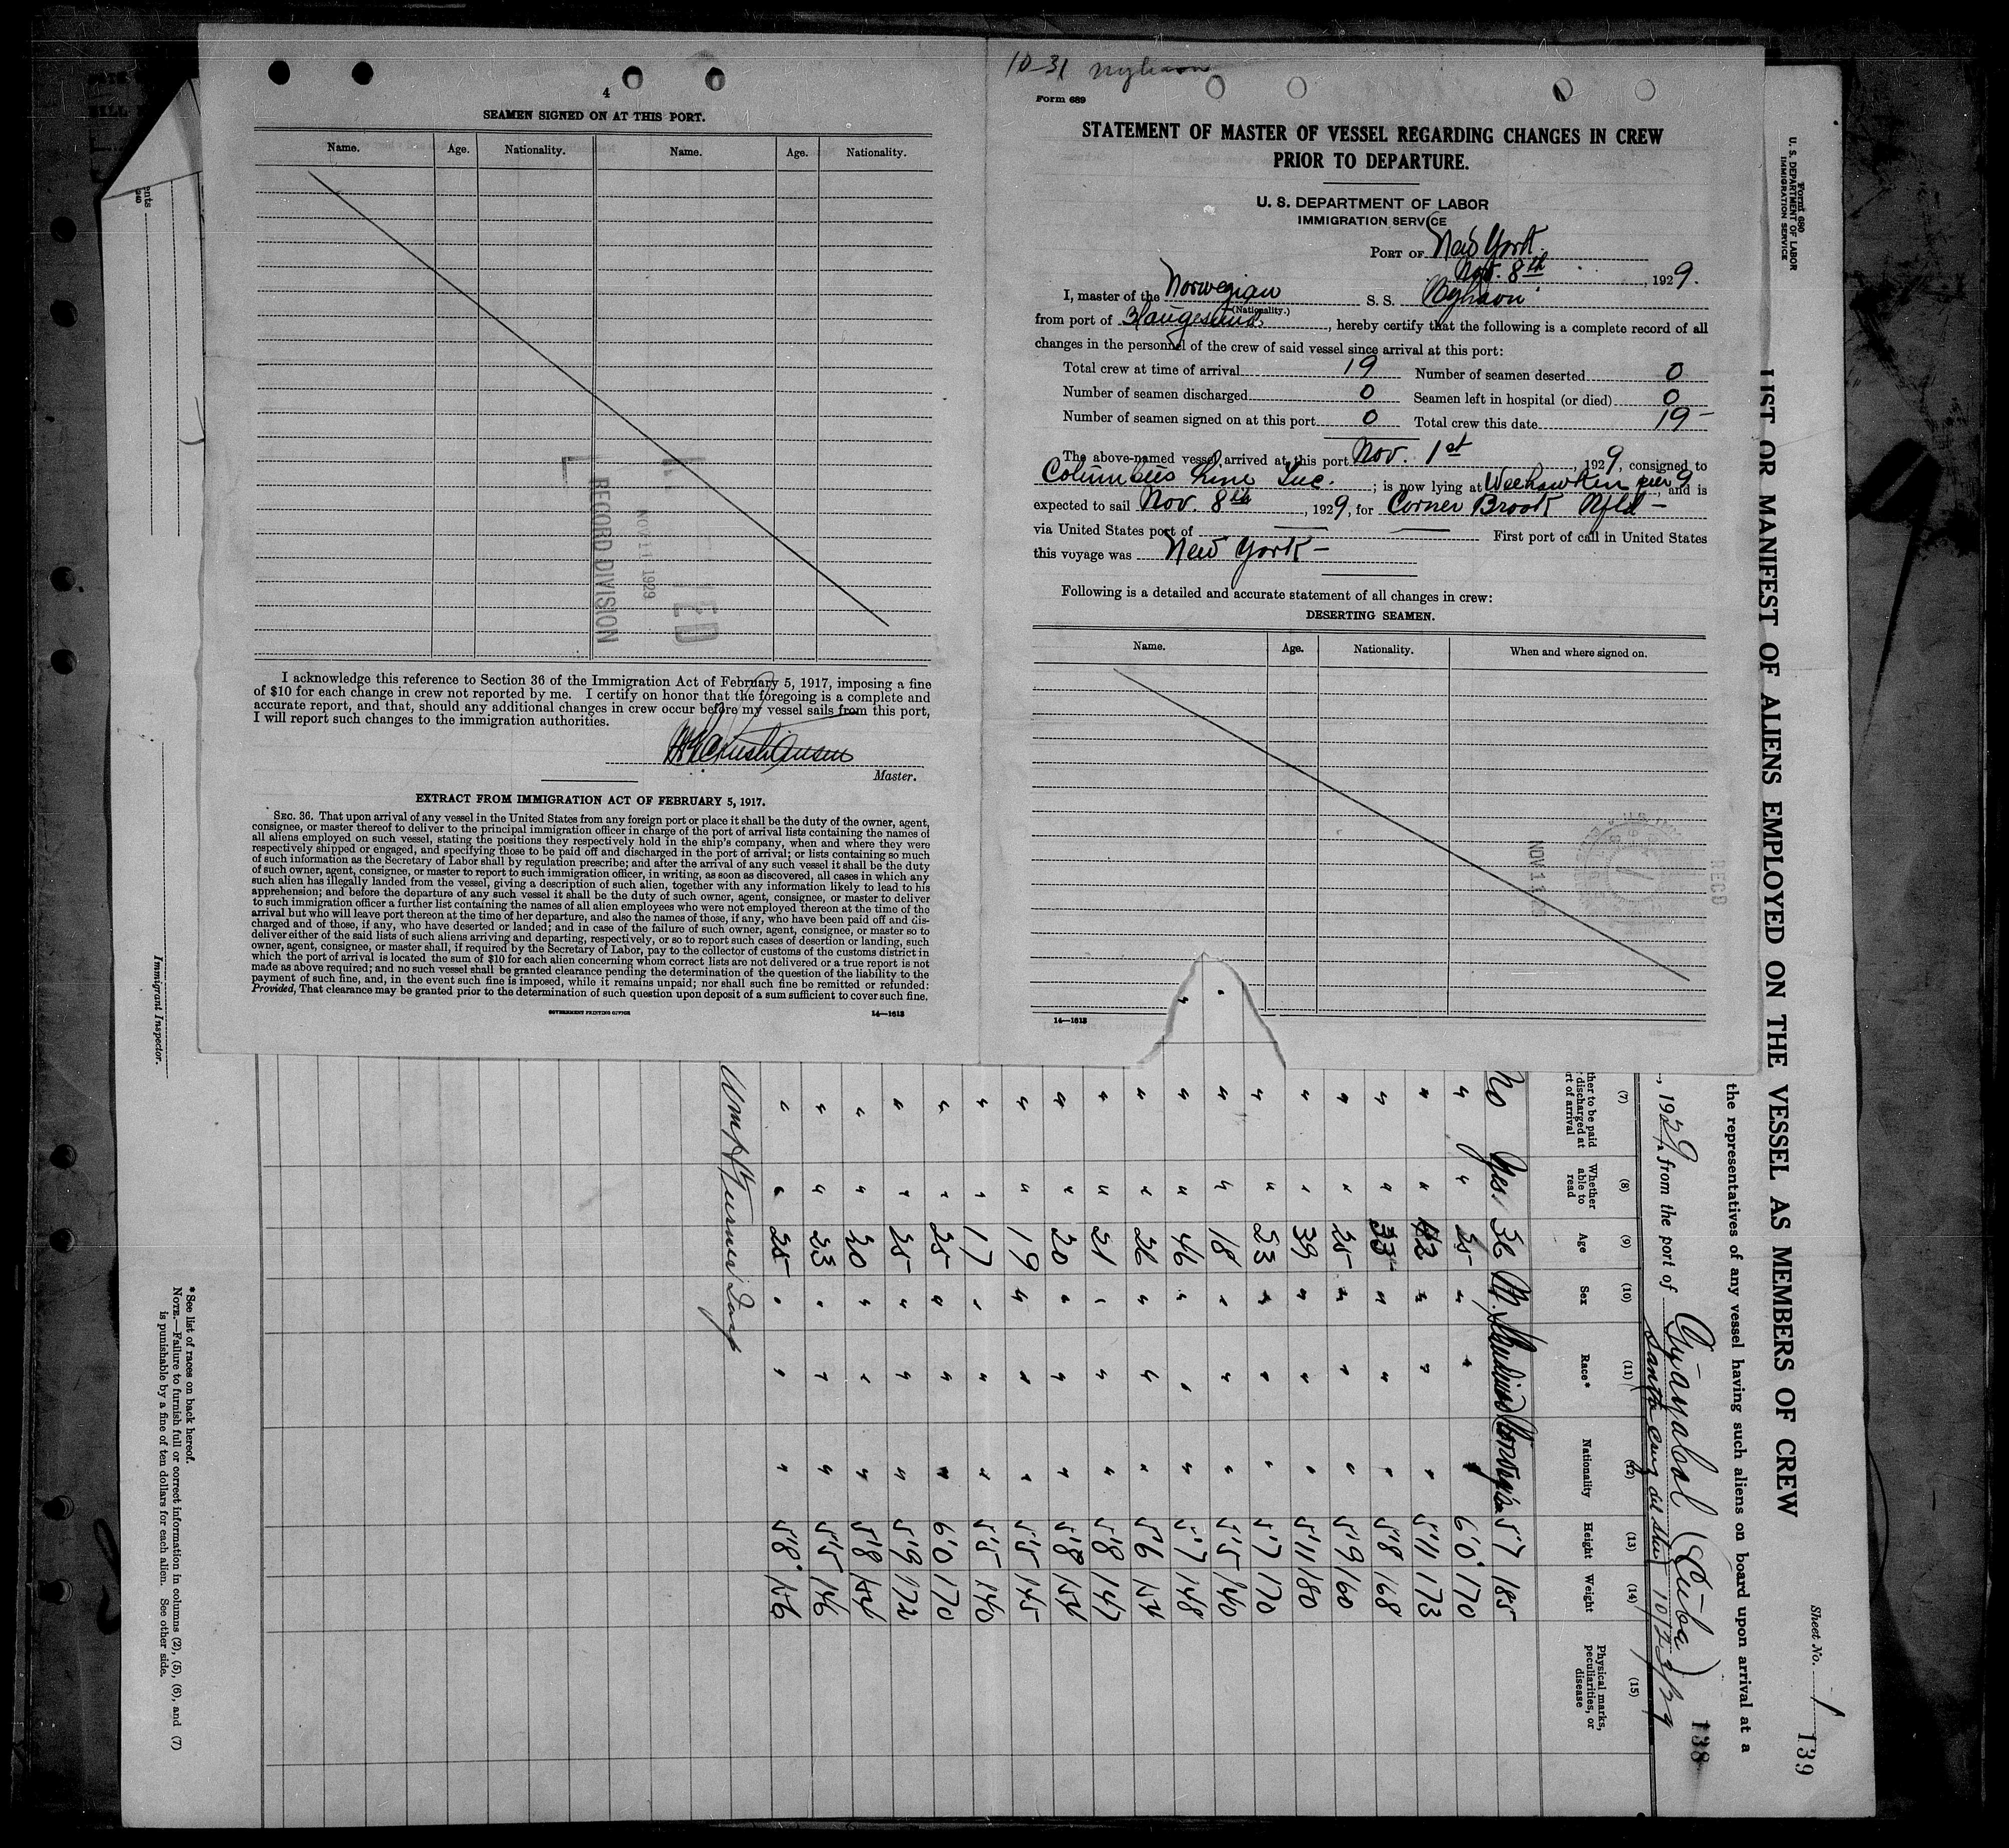 4
SEAMEN SIGNED ON AT THIS PORT.
Name. Age. Nationality. Name. Age. Nationality.
RECORD DIVISION
NOV 11 1929
I acknowledge this reference to Section 36 of the Immigration Act of February 5, 1917, imposing a fine
of $10 for each change in crew not reported by me. I certify on honor that the foregoing is a complete and
accurate report, and that, should any additional changes in crew occur before my vessel sails from this port,
I will report such changes to the immigration authorities.
Master.
EXTRACT FROM IMMIGRATION ACT OF FEBRUARY 5, 1917.
SEC. 36. That upon arrival of any vessel in the United States from any foreign port or place it shall be the duty of the owner, agent,
consignee, or master thereof to deliver to the principal immigration officer in charge of the port of arrival lists containing the names of
all aliens employed on such vessel, stating the positions they respectively hold in the ship's company, when and where they were
respectively shipped or engaged, and specifying those to be paid off and discharged in the port of arrival; or lists containing so much
of such information as the Secretary of Labor shall by regulation prescribe; and after the arrival of any such vessel it shall be the duty
of such owner, agent, consignee, or master to report to such immigration officer, in writing, as soon as discovered, all cases in which any
such alien has illegally landed from the vessel, giving a description of such alien, together with any information likely to lead to his
apprehension; and before the departure of any such vessel it shall be the duty of such owner, agent, consignee, or master to deliver
to such immigration officer a further list containing the names of all alien employees who were not employed thereon at the time of the
arrival but who will leave port thereon at the time of her departure, and also the names of those, if any, who have been paid off and dis-
charged and of those, if any, who have deserted or landed; and in case of the failure of such owner, agent, consignee, or master so to
deliver either of the said lists of such aliens arriving and departing, respectively, or so to report such cases of desertion or landing, such
owner, agent, consignee, or master shall, if required by the Secretary of Labor, pay to the collector of customs of the customs district in
which the port of arrival is located the sum of $10 for each alien concerning whom correct lists are not delivered or a true report is not
made as above required; and no such vessel shall be granted clearance pending the determination of the question of the liability to the
payment of such fine, and, in the event such fine is imposed, while it remains unpaid; nor shall such fine be remitted or refunded:
Provided, That clearance may be granted prior to the determination of such question upon deposit of a sum sufficient to cover such fine.
GOVERNMENT PRINTING OFFICE 14—1613
10-31
Form 689
STATEMENT OF MASTER OF VESSEL REGARDING CHANGES IN CREW
PRIOR TO DEPARTURE.
U. S. DEPARTMENT OF LABOR
IMMIGRATION SERVICE
PORT OF New York
Nov. 8th, 1929.
I, master of the Norwegian S. S.
(Nationality.)
from port of Haugesund, hereby certify that the following is a complete record of all
changes in the personnel of the crew of said vessel since arrival at this port:
Total crew at time of arrival 19 Number of seamen deserted 0
Number of seamen discharged 0 Seamen left in hospital (or died) 0
Number of seamen signed on at this port 0 Total crew this date 19—
The above-named vessel arrived at this port Nov. 1st, 1929, consigned to
Columbus Line Inc.; is now lying at Weehawken pier 9, and is
expected to sail Nov. 8th, 1929, for Corner Brook Nfld—
via United States port of First port of call in United States
this voyage was New York—
Following is a detailed and accurate statement of all changes in crew:
DESERTING SEAMEN.
Name. Age. Nationality. When and where signed on.
NOV 11
RECD
14—1613
Form 680
U. S. DEPARTMENT OF LABOR
IMMIGRATION SERVICE
Sheet No. 1
139
138
LIST OR MANIFEST OF ALIENS EMPLOYED ON THE VESSEL AS MEMBERS OF CREW
the representatives of any vessel having such aliens on board upon arrival at a
, 1929, from the port of Guayabal (Cuba)
Santa Cruz del Sur 10/23/29
(7) (8) (9) (10) (11) (12) (13) (14) (15)
ther to be paid discharged at rt of arrival
Whether able to read
Age
Sex
Race*
Nationality
Height
Weight
Physical marks, peculiarities, or disease
No Yes 36 M. Scandinav Norwegian 5'7 185
" " 25 " " " 6'0" 170
" " 42 " " " 5'11 173
" " 33 " " " 5'8 168
" " 25 " " " 5'9 160
" " 39 " " " 5'11 180
" " 23 " " " 5'7 170
" " 18 " " " 5'5 140
" " 46 " " " 5'7 148
" " 26 " " " 5'6 154
" " 21 " " " 5'8 147
" " 20 " " " 5'8 154
" " 19 " " " 5'5 145
" " 17 " " " 5'5 140
" " 25 " " " 6'0 170
" " 25 " " " 5'9 172
" " 20 " " " 5'8 154
" " 23 " " " 5'5 146
" " 25 " " " 5'8" 156
Immigrant Inspector.
*See list of races on back hereof.
NOTE.—Failure to furnish full or correct information in columns (2), (5), (6), and (7)
is punishable by a fine of ten dollars for each alien. See other side.